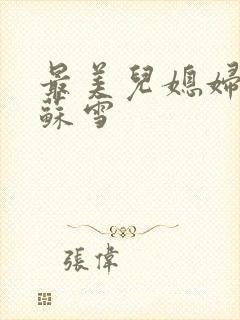 最美兒媳婦
蘇雪
張偉